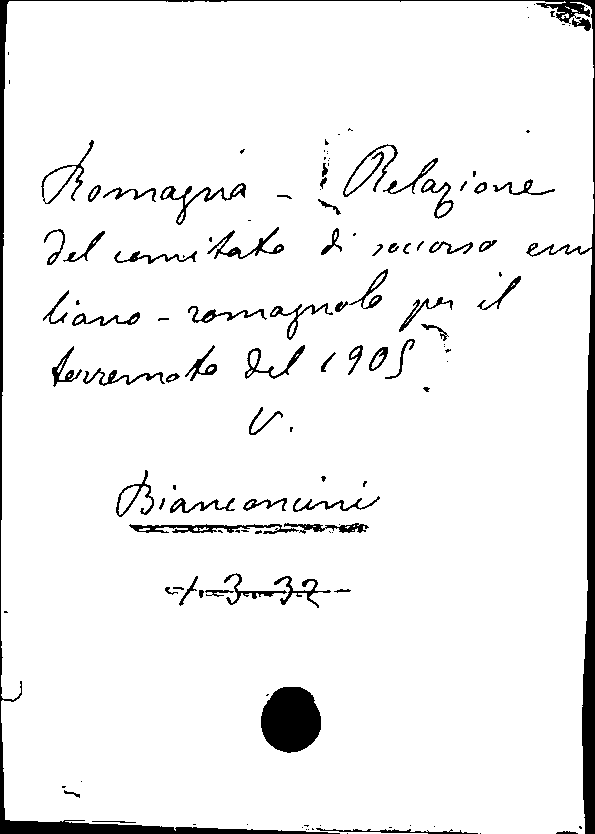 Romagna - [Relazione
del comitato di soccorso emi
liano-romagnolo per il
terremoto del 1905]
V.
Bianconcini
1.3.32